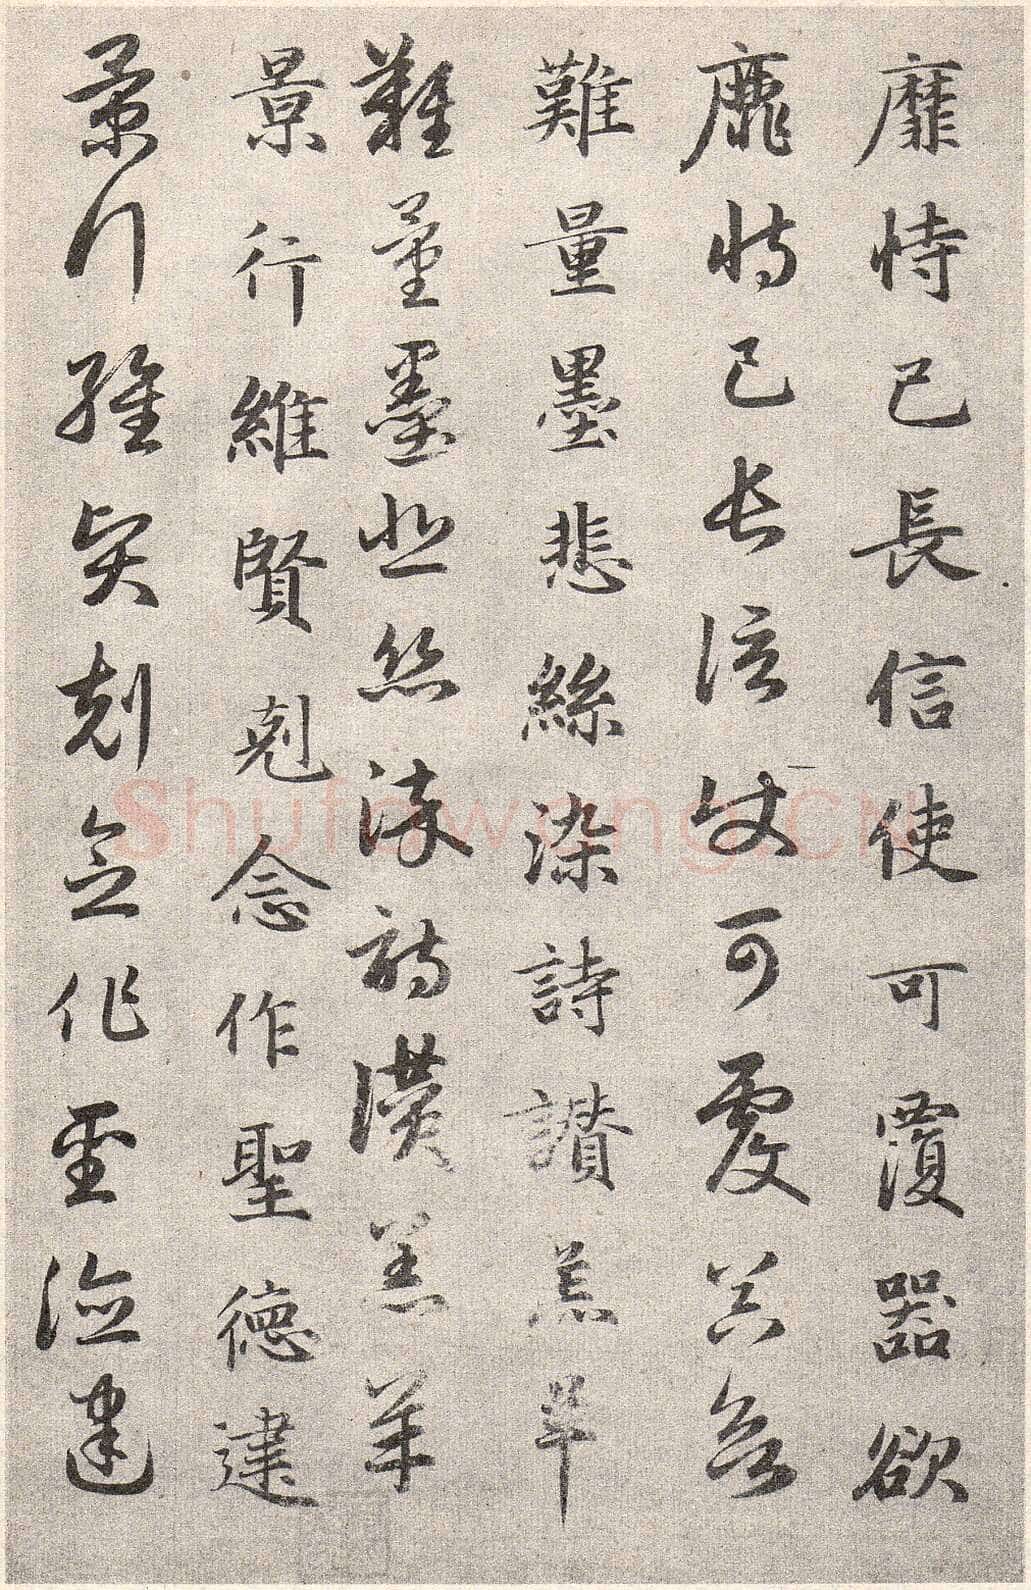 靡恃己長信使可覆器欲
靡恃己長信使可覆器欲
難量墨悲絲染詩讃羔羊
難量墨悲絲染詩讃羔羊
景行維賢剋念作聖德建
景行維賢剋念作聖德建
Shufawang.cn